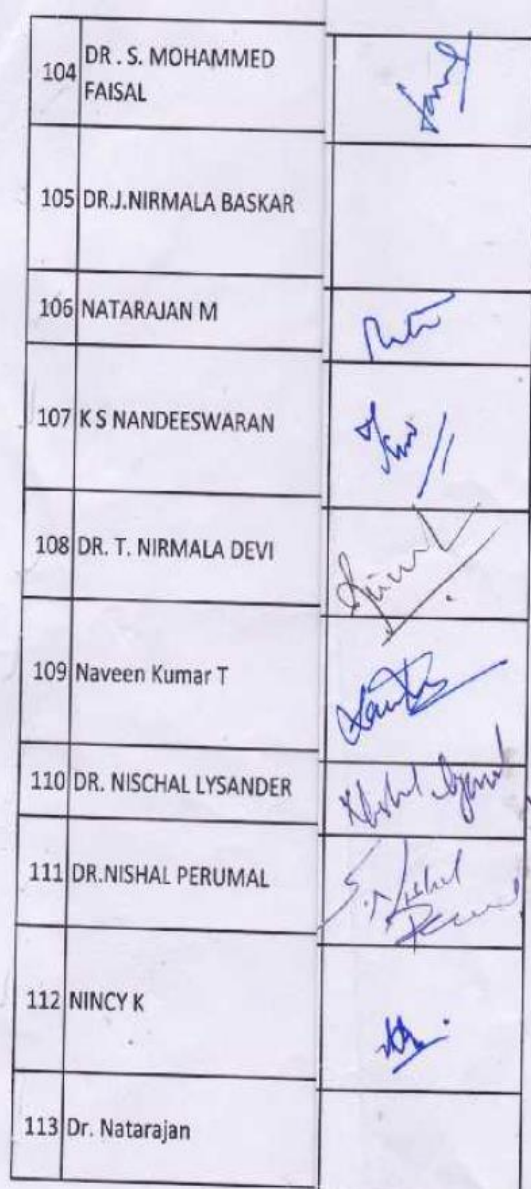 104 DR . S. MOHAMMED
FAISAL
105 DR.J.NIRMALA BASKAR
106 NATARAJAN M
107 K S NANDEESWARAN
108 DR. T. NIRMALA DEVI
109 Naveen Kumar T
110 DR. NISCHAL LYSANDER
111 DR.NISHAL PERUMAL
112 NINCY K
113 Dr. Natarajan